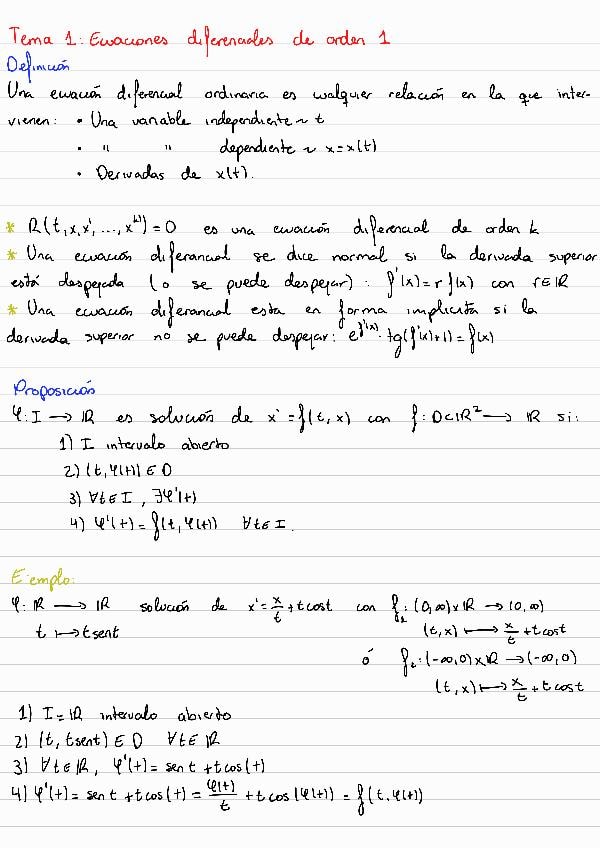 Tema 1: Ecuaciones diferenciales de orden 1
Definición
Una ecuación diferencial ordinaria es cualquier relación en la que inter-
vienen: • Una variable independiente ~ t
• " " dependiente ~ x = x(t)
• Derivadas de x(t).
* R(t,x,x',...,x^(k)) = 0 es una ecuación diferencial de orden k
* Una ecuación diferencial se dice normal si la derivada superior
está despejada (o se puede despejar): f'(x) = r f(x) con r∈ℝ
* Una ecuación diferencial esta en forma implícita si la
derivada superior no se puede despejar: e^f'(x) · tg(f'(x)+1) = f(x)
Proposición
φ: I → ℝ es solución de x' = f(t,x) con f: D⊂ℝ² → ℝ si:
1) I intervalo abierto
2) (t, φ(t)) ∈ D
3) ∀t∈I, ∃φ'(t)
4) φ'(t) = f(t, φ(t)) ∀t∈I.
Ejemplo:
φ: ℝ → ℝ solución de x' = x/t + t cos t con f₁: (0,∞)×ℝ → (0,∞)
t ↦ t sen t (t,x) ↦ x/t + t cos t
ó f₂: (-∞,0)×ℝ → (-∞,0)
(t,x) ↦ x/t + t cos t
1) I = ℝ intervalo abierto
2) (t, t sen t) ∈ D ∀t∈ℝ
3) ∀t∈ℝ, φ'(t) = sen t + t cos(t)
4) φ'(t) = sen t + t cos(t) = φ(t)/t + t cos(φ(t)) = f(t, φ(t))